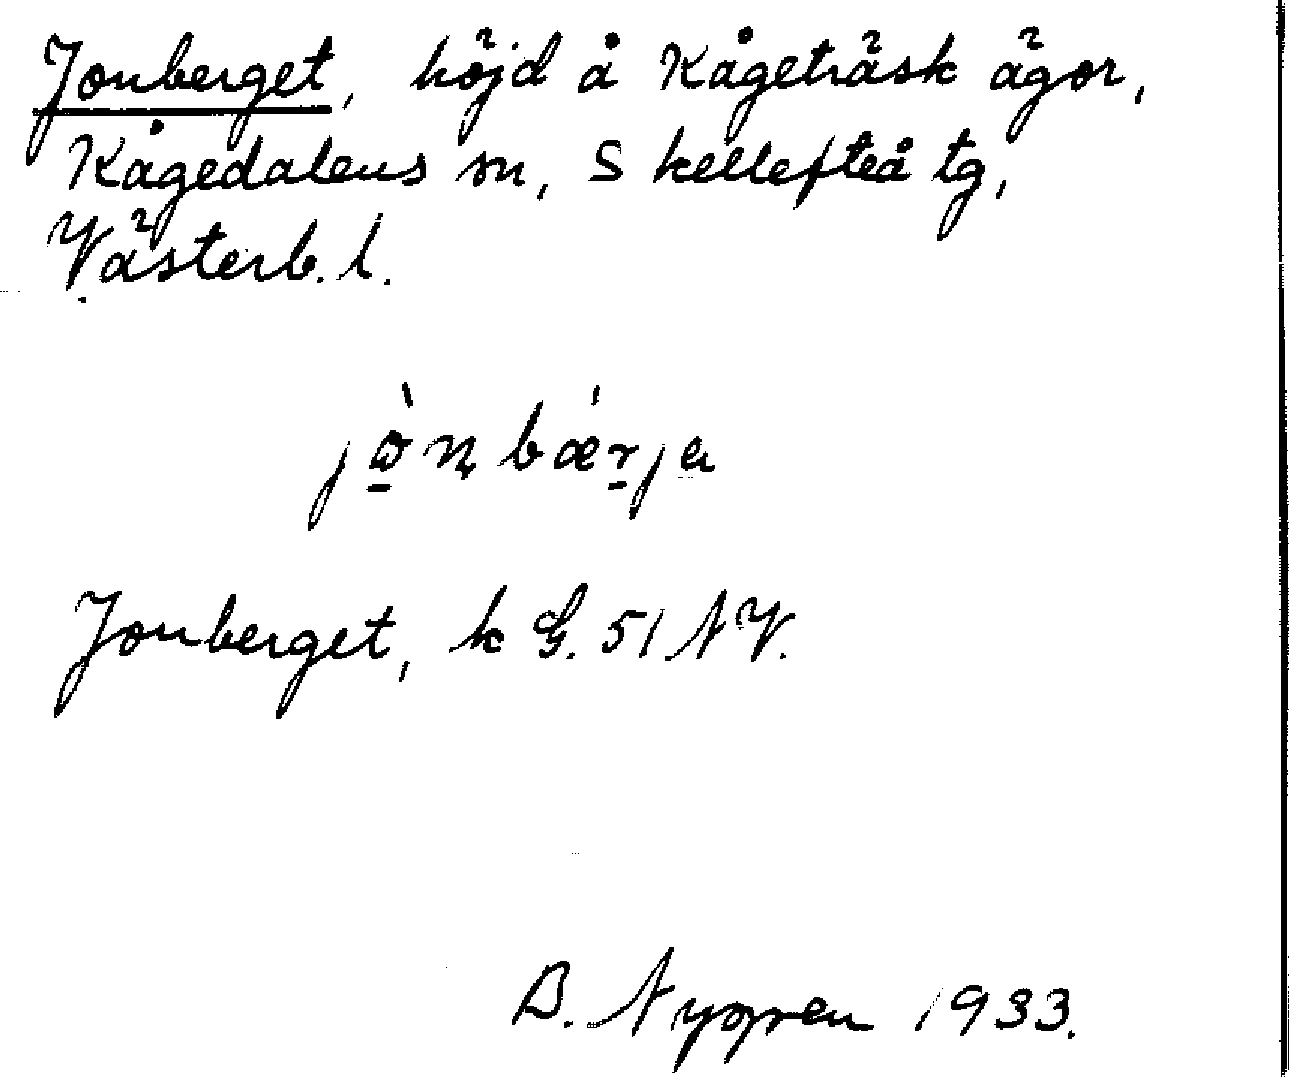 Jonberget, höjd å Kågeträsk ägor,
Kågedalens sn, Skellefteå tg,
Västerb. l.
jò̠n bǽr̠ja
Jonberget, k G. 51 NV.
B. Nygren 1933.